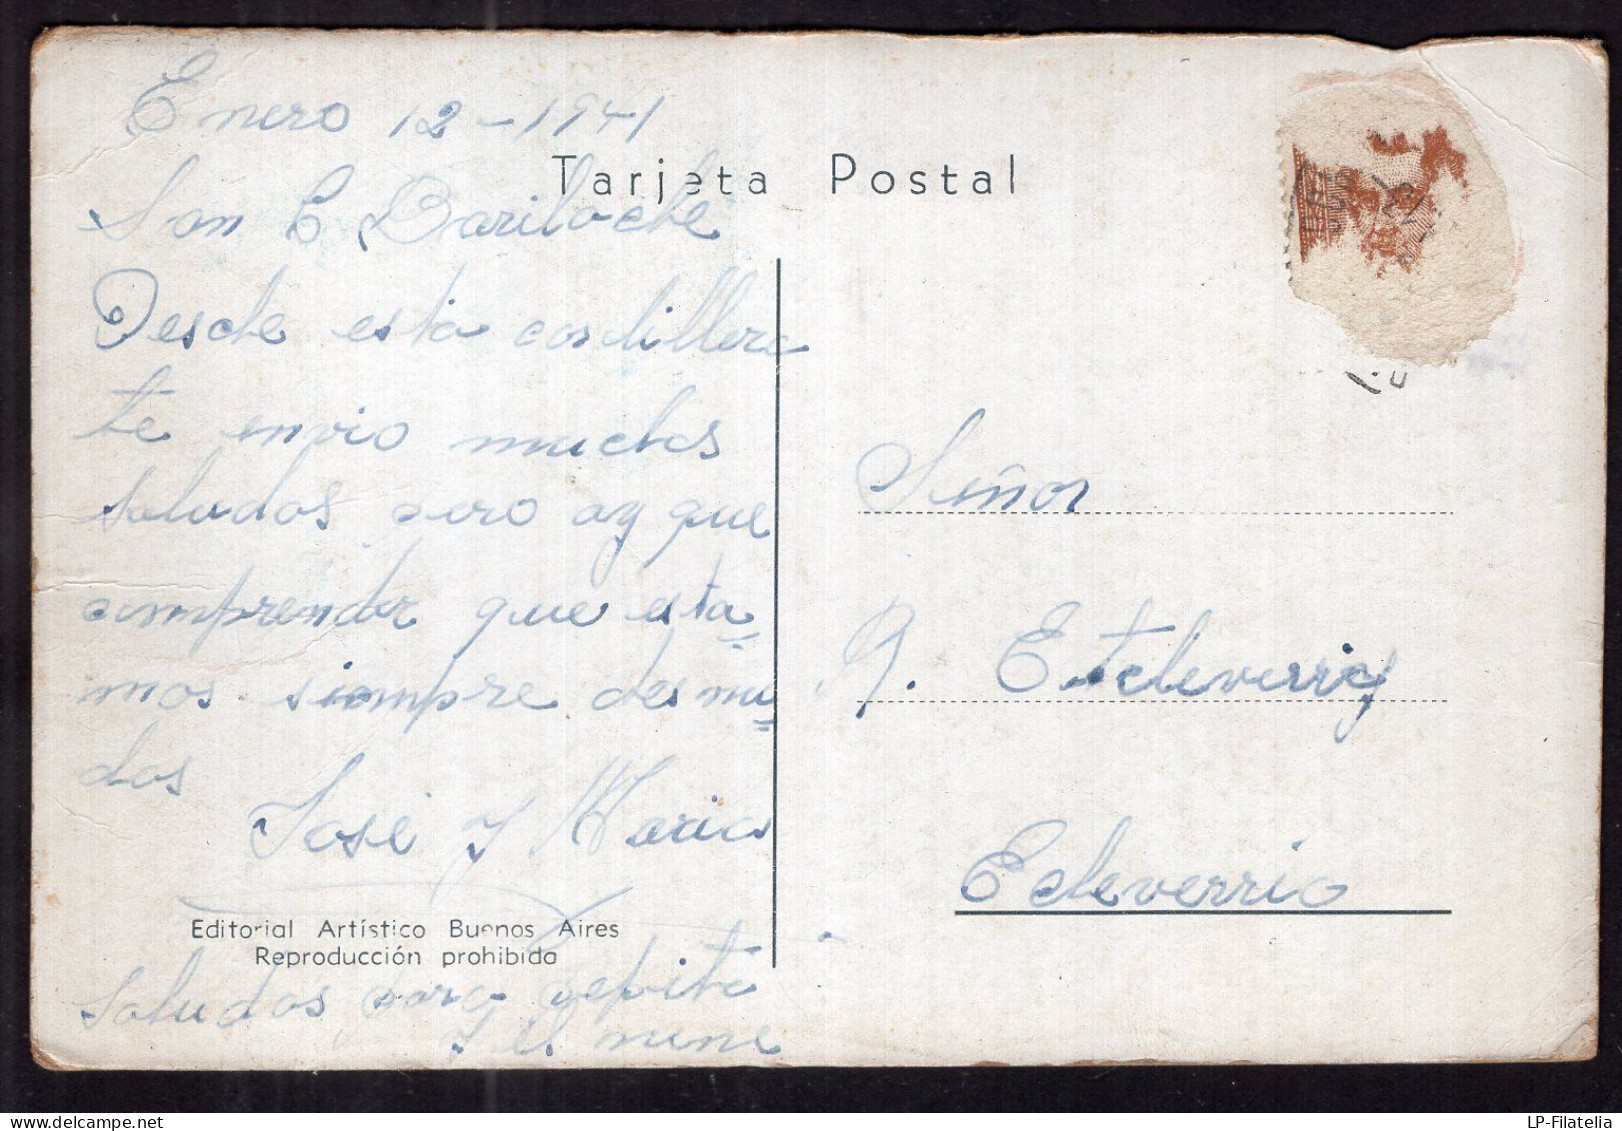 Enero 12-1941
Tarjeta Postal
San C Bariloche
Desde esta cordillera
te envio muchos
saludos pero ay que
comprender que esta=
mos siempre desnu=
dos
José y Maria
Editorial Artístico Buenos Aires
Reproducción prohibida
Saludos para pepita
y el nene
Señor
Etcheverria
Echeverria
LP-Filatelia